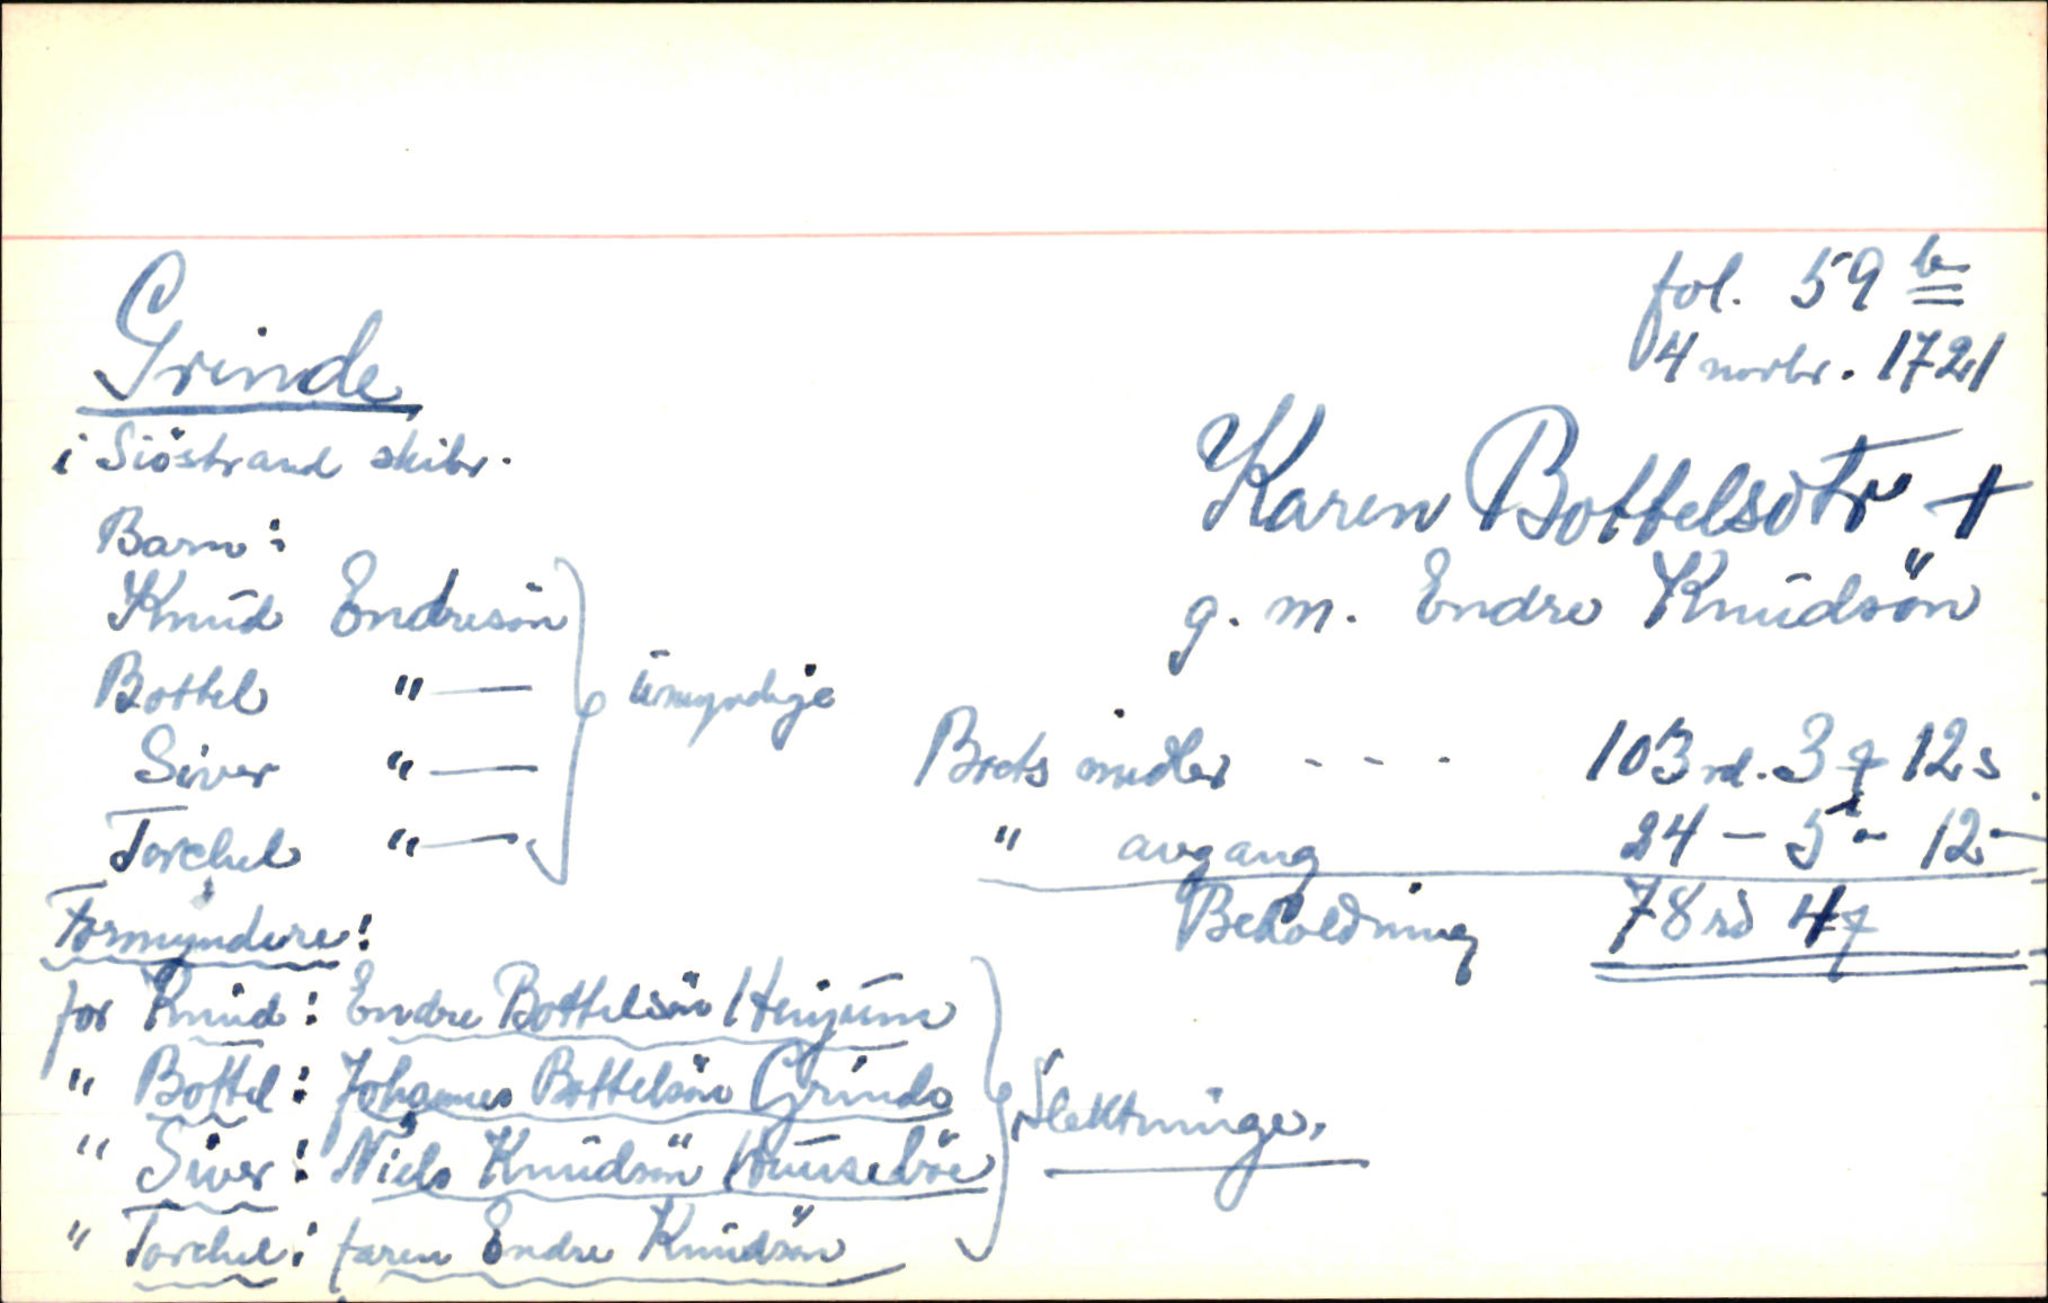 fol. 59 b
4 novbr. 1721
Grinde
i Siöstrand skibr.
Karen Bottelsdtr +
g. m. Endre Knudsön
Barn:
Knud Endresön
Bottel " —
Siver " —
Torchel " —
umyndige
Boets midler - - - 103 rd. 3 ƒ 12 s
" avgang 24 – 5 – 12 –
Beholdning 78 rd 4 ƒ
Formyndere:
for Knud: Endre Bottelsön Henjum
" Bottel: Johannes Bottelsön Grinde
" Siver: Niels Knudsön Huuseböe
" Torchel: faren Endre Knudsön
Slektninge.